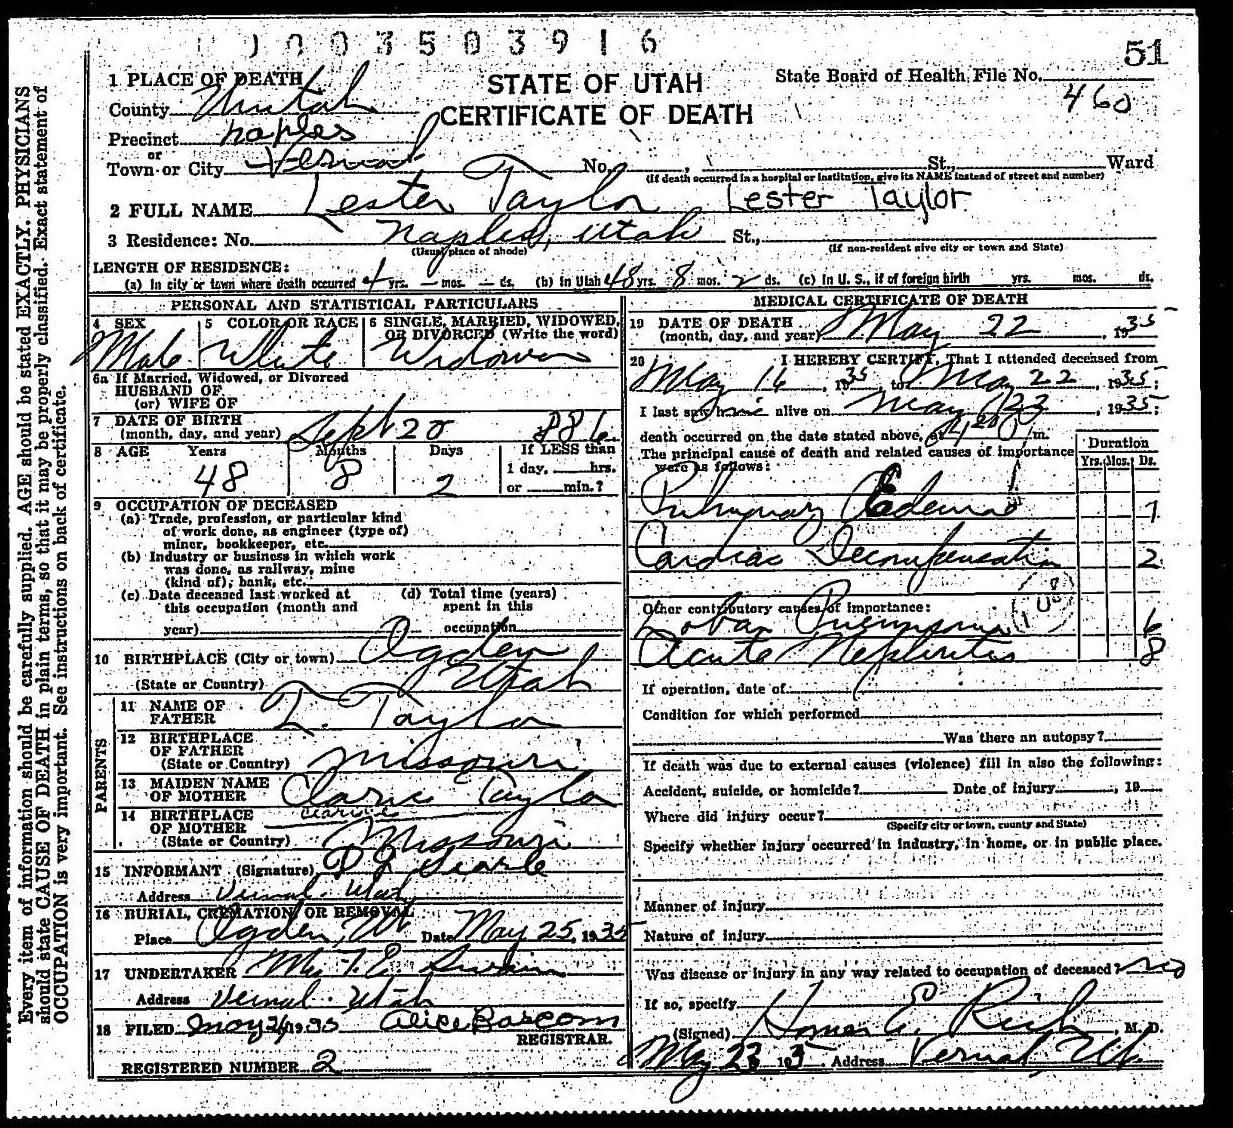 1003503916
51
1 PLACE OF DEATH
STATE OF UTAH
CERTIFICATE OF DEATH
State Board of Health File No. 460
County Uintah
Precinct Naples
or
Town or City Vernal No. , St., Ward
(If death occurred in a hospital or institution, give its NAME instead of street and number)
2 FULL NAME Lester Taylor Lester Taylor
3 Residence: No. Naples, Utah St.,
(Usual place of abode) (If non-resident give city or town and State)
LENGTH OF RESIDENCE:
(a) In city or town where death occurred 4 yrs. - mos. - ds. (b) In Utah 48 yrs. 8 mos. 2 ds. (c) In U. S., if of foreign birth yrs. mos. ds.
PERSONAL AND STATISTICAL PARTICULARS
4 SEX Male
5 COLOR OR RACE White
6 SINGLE, MARRIED, WIDOWED, OR DIVORCED (Write the word) Widower
6a If Married, Widowed, or Divorced
HUSBAND OF
(or) WIFE OF
7 DATE OF BIRTH
(month, day, and year) Sept 20 886
8 AGE Years 48 Months 8 Days 2
If LESS than
1 day, hrs.
or min.?
9 OCCUPATION OF DECEASED
(a) Trade, profession, or particular kind
of work done, as engineer (type of)
miner, bookkeeper, etc.
(b) Industry or business in which work
was done, as railway, mine
(kind of); bank, etc.
(c) Date deceased last worked at
this occupation (month and
year)
(d) Total time (years)
spent in this
occupation
10 BIRTHPLACE (City or town) Ogden
(State or Country) Utah
PARENTS
11 NAME OF
FATHER Taylor
12 BIRTHPLACE
OF FATHER
(State or Country) Missouri
13 MAIDEN NAME
OF MOTHER Claric Taylor
14 BIRTHPLACE
OF MOTHER
(State or Country) Missouri
15 INFORMANT (Signature) Searle
Address Vernal Utah
16 BURIAL, CREMATION, OR REMOVAL
Place Ogden, Ut Date May 25, 1935
17 UNDERTAKER Swain
Address Vernal Utah
18 FILED May 24 1935 Alice Bascom
REGISTRAR.
REGISTERED NUMBER 2
MEDICAL CERTIFICATE OF DEATH
19 DATE OF DEATH
(month, day, and year) May 22, 1935
20 I HEREBY CERTIFY, That I attended deceased from
May 16, 1935, to May 22, 1935;
I last saw him alive on May 22, 1935;
death occurred on the date stated above, at m.
The principal cause of death and related causes of importance
were as follows:
Duration
Yrs. Mos. Ds.
Pulmonary Edema 1
Cardiac Decompensation 2
Other contributory causes of importance:
Lobar Pneumonia 6
Acute Nephritis 8
If operation, date of
Condition for which performed
Was there an autopsy?
If death was due to external causes (violence) fill in also the following:
Accident, suicide, or homicide? Date of injury , 19
Where did injury occur?
(Specify city or town, county and State)
Specify whether injury occurred in industry, in home, or in public place.
Manner of injury
Nature of injury
Was disease or injury in any way related to occupation of deceased? no
If so, specify
(Signed) Homer E. Rich, M. D.
May 23 1935 Address Vernal, Ut.
Every item of information should be carefully supplied. AGE should be stated EXACTLY. PHYSICIANS
should state CAUSE OF DEATH in plain terms, so that it may be properly classified. Exact statement of
OCCUPATION is very important. See instructions on back of certificate.